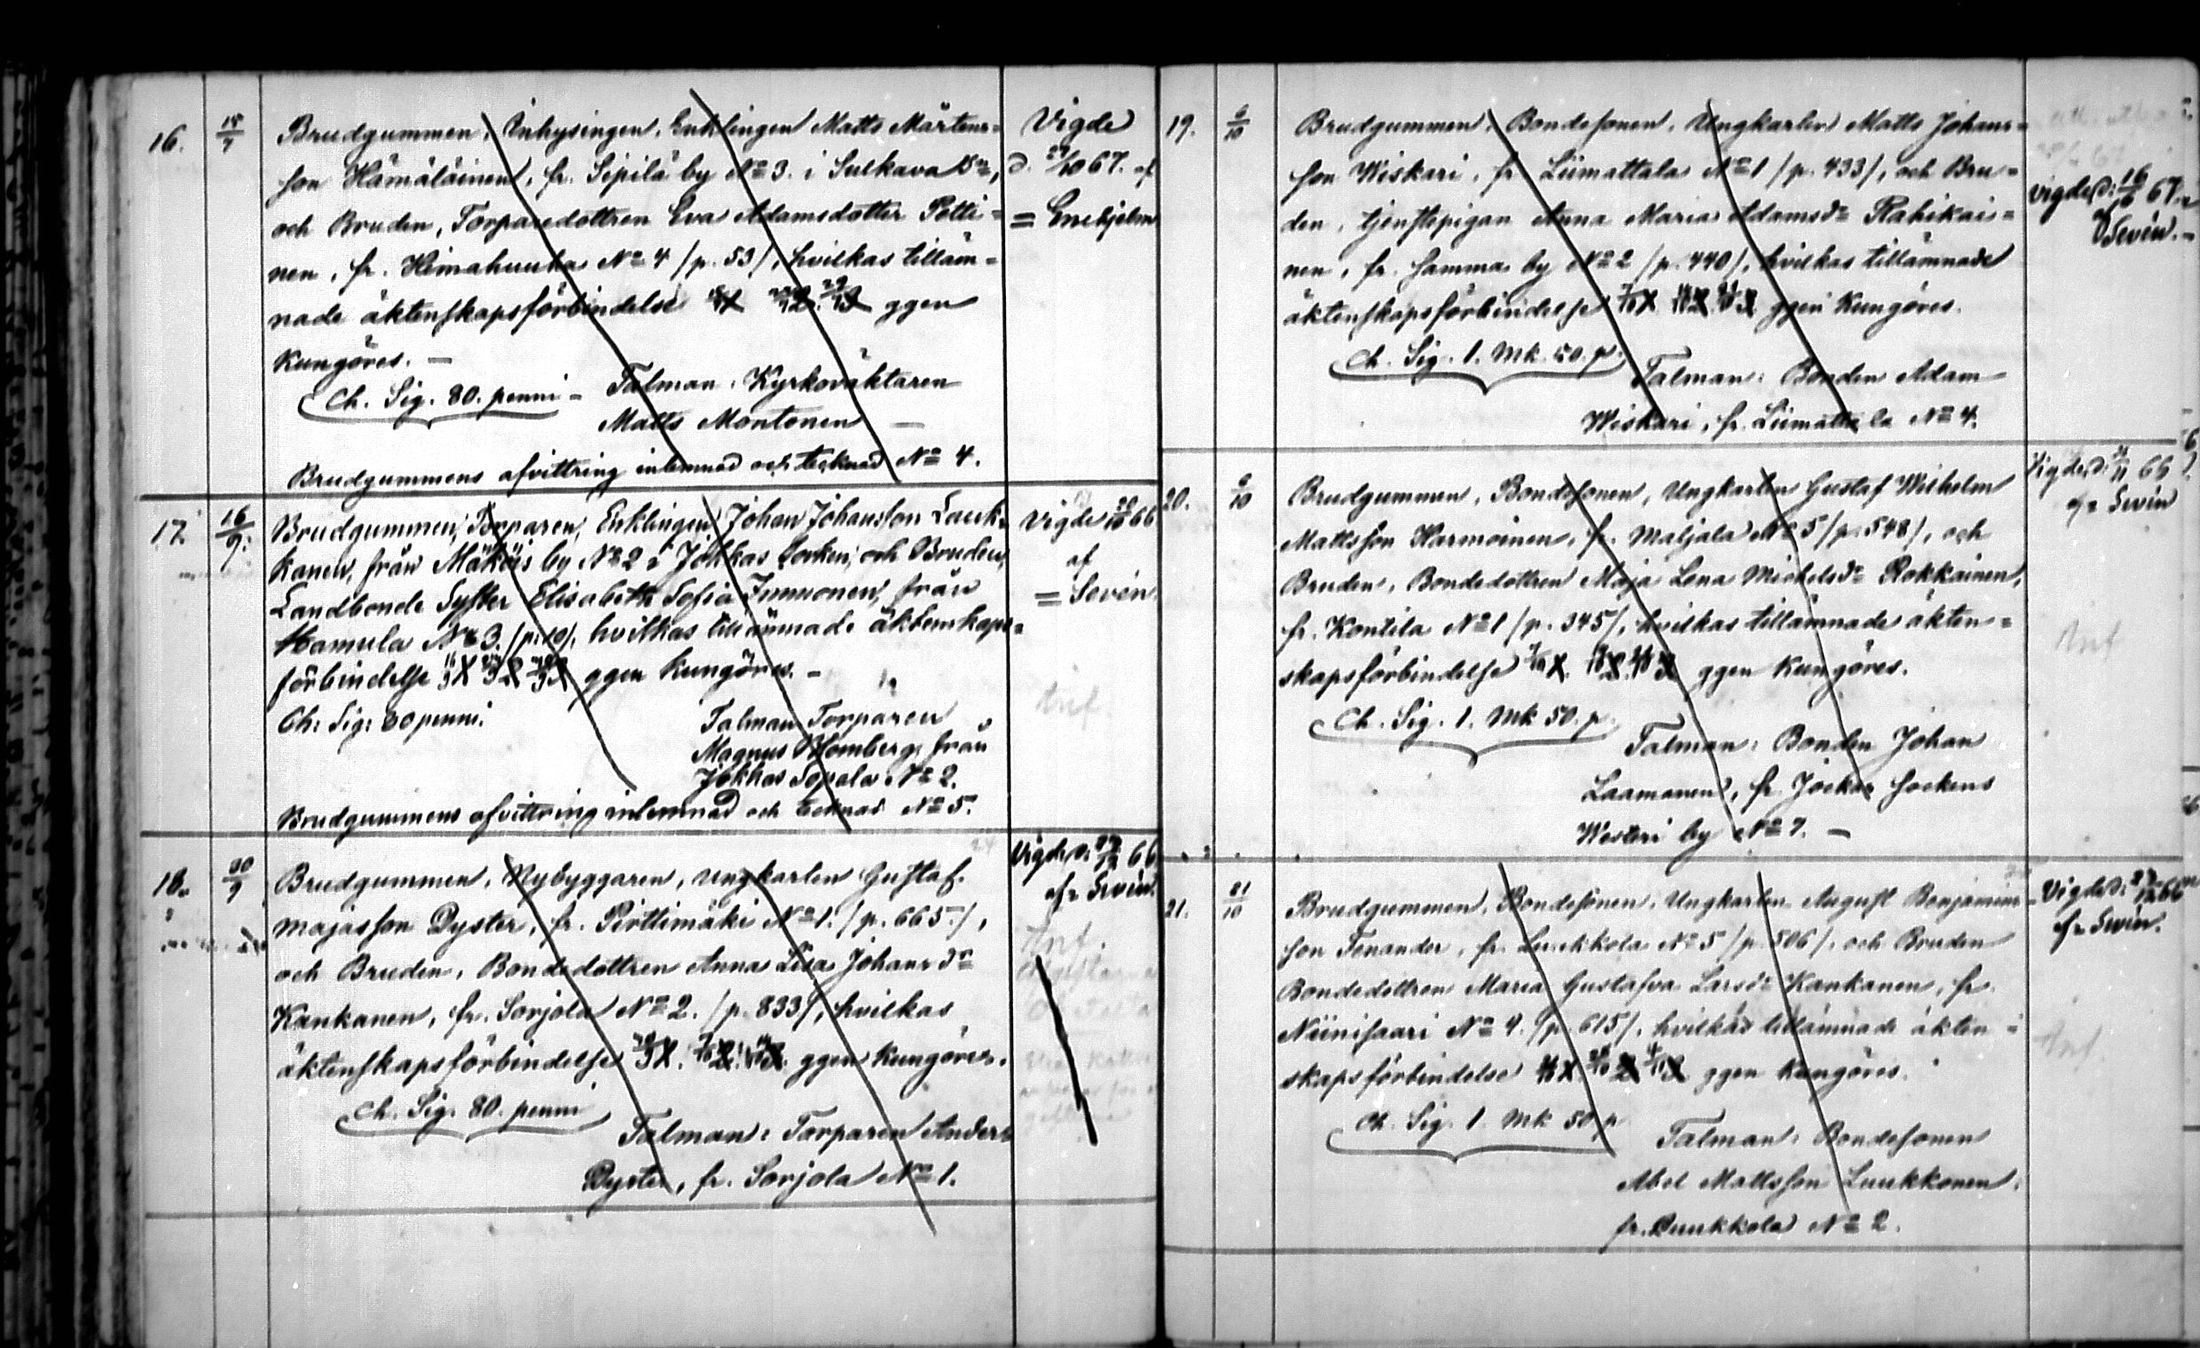 16. 15/7 Brudgummen, Inhysingen, Enklingen Matts Mårtens= Vigde
son Hämäläinen, fr. Sipilä by No 3. i Sulkava Sn, d. 27/10 67. af
och Bruden, Torparedottren Eva Adamsdotter Potti= = Enehjelm
nen, fr. Himahuuha No 4 /p. 53/, hvilkas tilläm=
nade äktenskapsförbindelse X 2 3 ggen
Kungöres. —
Ch. Sig. 80. penni — Talman: Kyrkoväktaren
Matts Montonen —
Brudgummens afvittring inlemnad och tecknad No 4.
17. 16/9. Brudgummen, Torparen, Enklingen Johan Johansson Lauk= Vigde 66
kanen, från by No 2 i Jokkas Socken, och Bruden, af
Landbonde Syster Elisabeth Sofia Immonen, från = Sevén.
Hamula No 3. /p. 10/, hvilkas tillämnade äktenskaps=
förbindelse X 2 3 ggen kungöres. —
Ch: Sig: 80 penni. Talman Torparen
Magnus Blomberg från
Jokkas Sopala No 2.
Brudgummens afvittring inlemnad och tecknad No 5.
18. 30/9 Brudgummen, Nybyggaren, ungkarlen Gustaf Vigde d: 66
Majasson Dyster, fr. Pirttimäki No 1. /p. 665./, af Sevén.
och Bruden, Bondedottren Anna Lisa Johans dr Inf.
Kankanen, fr. Sorjola No 2. /p. 833/, hvilkas
äktenskapsförbindelse X. 2. 3. ggen kungöres.
Ch. Sig. 80. penni
Talman: Torparen Anders
Dyster, fr. Sorjola No 1.
19. 6/10 Brudgummen, Bondesonen, Ungkarlen Matts Johans=
son Wiskari, fr. Liimattala No 1 /p. 433/, och Bru= Vigde d: 67.
den, tjenstepigan Anna Maria Adams dr Rahikai= af Sevén.
nen, fr. samma by No 2 /p. 440/, hvilkas tillämnade
äktenskapsförbindelse X. 2. 3. ggen Kungöres.
Ch. Sig. 1. Mk. 50. p.
Talman: Bonden Adam
Wiskari, fr. Liimattala No 4.
20. 6/10 Brudgummen, Bondesonen, Ungkarlen Gustaf Wilhelm Vigde d: 66
Mattsson Harmoinen, fr. Maljala No 5 /p. 548/, och af Sevén
Bruden, Bondedottren Maja Lena Mickels dr Rokkainen,
fr. Kontila No 1 /p. 345/, hvilkas tillämnade äkten=
skapsförbindelse X. 2. 3 ggen Kungöres. Inf
Ch. Sig. 1. Mk 50. p.
Talman: Bonden Johan
Laamanen, fr. Jockas sockens
Westeri by No 7. —
21. 21/10 Brudgummen, Bondesonen, Ungkarlen August Benjamins= Vigde d: 66
son Tenander, fr. Luukkola No 5 /p. 506/, och Bruden af Sevén.
Bondedottren Maria Gustafva Lars dr Kankanen, fr.
Niinisaari No 4. /p. 615/, hvilkas tillämnade äkten=
skapsförbindelse X 2 3 ggen Kungöres. Inf.
Ch. Sig. 1 Mk 50 p
Talman: Bondesonen
Abel Mattsson Luukkonen,
fr. Luukkola No 2.